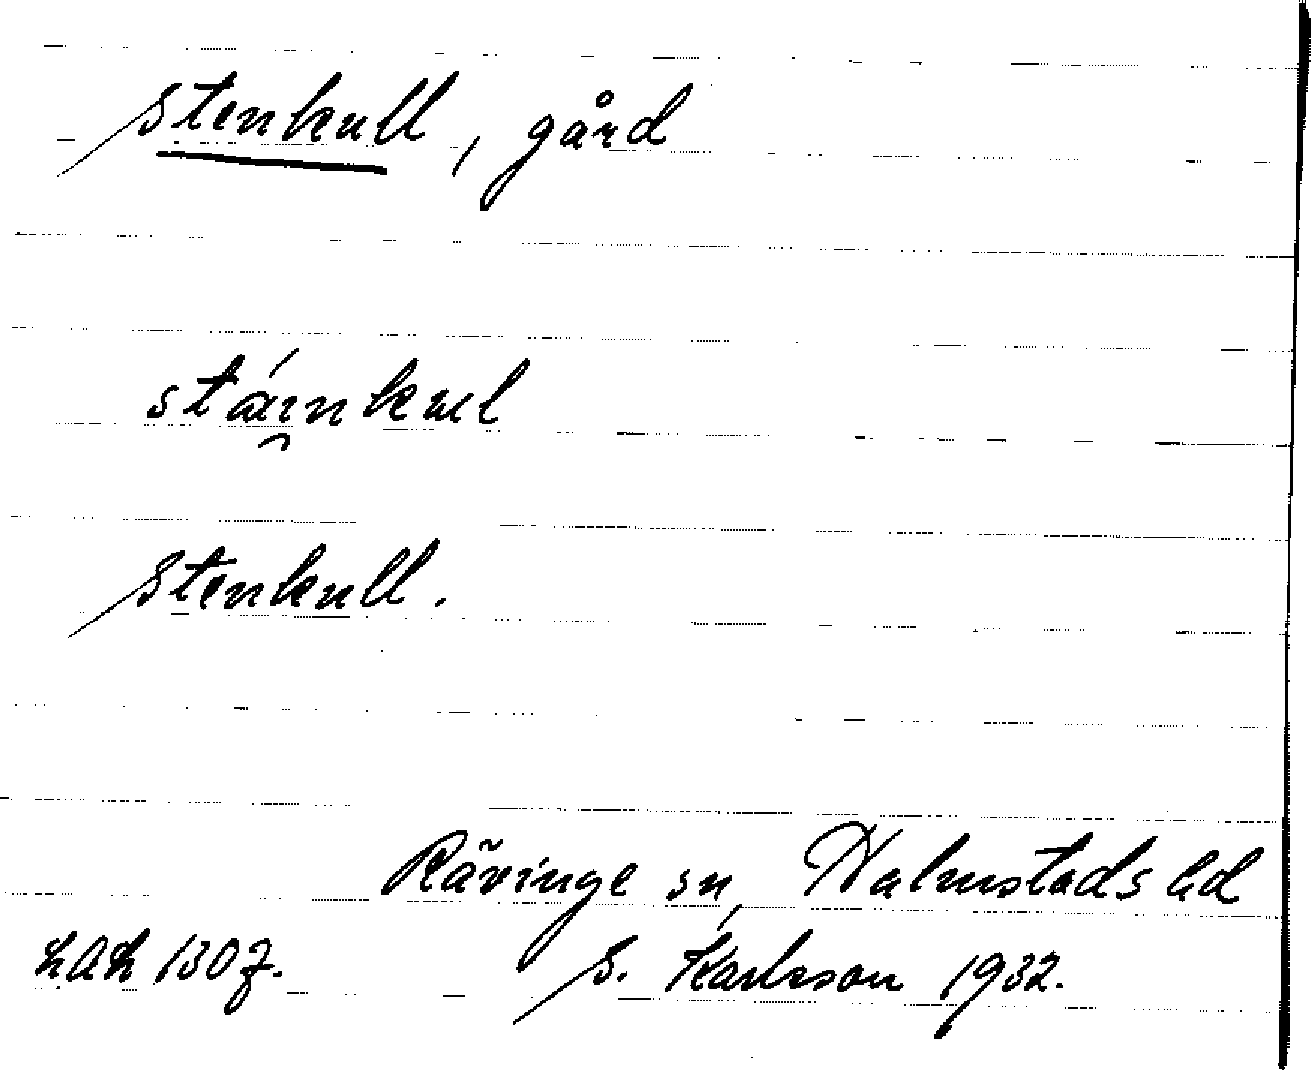 Stenkull, gård
stái̯nkul
Stenkull.
Rävinge sn, Halmstads hd
LAL 1307. S. Karlsson 1932.